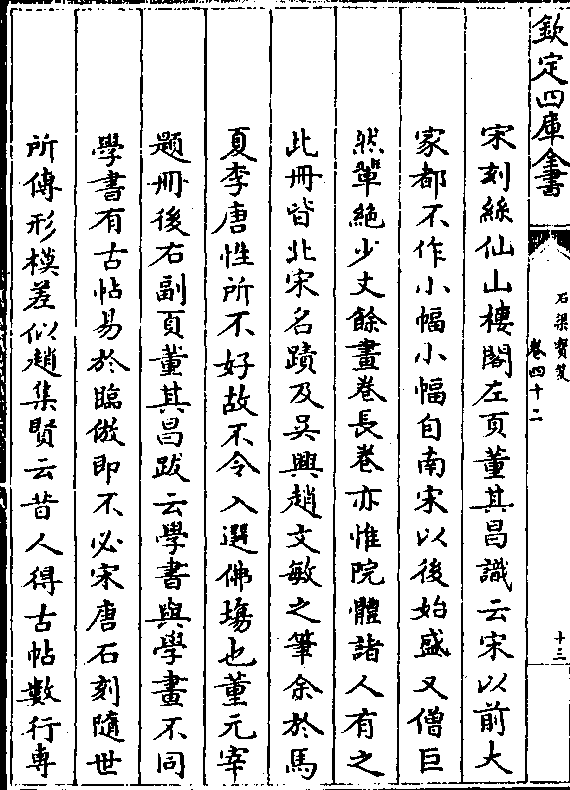 欽定四庫全書
石渠寳笈
卷四十二
十三
宋刻絲仙山樓閣左頁董其昌識云宋以前大
家都不作小幅小幅自南宋以後始盛又僧巨
然輩絶少丈餘畫卷長卷亦惟院體諸人有之
此冊皆北宋名蹟及吳興趙文敏之筆余於馬
夏李唐性所不好故不令入選佛塲也董元宰
題冊後右副頁董其昌跋云學書與學畫不同
學書有古帖易於臨倣即不必宋唐石刻隨世
所傳形模差似趙集賢云昔人得古帖數行専